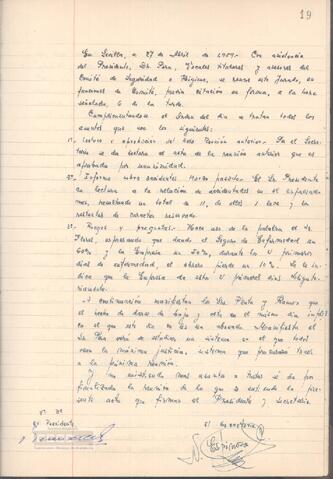 19
En Sevilla, a 27 de Abril de 1959. Con asistencia
del Presidente, Sr. Para, Vocales titulares y asesores del
Comité de Seguridad e Higiene, se reune este Jurado, en
funciones de Comité, previa citación en forma, a la hora
señalada, 6 de la tarde.
Cumplimentandose el Orden del dia se tratan todos los
asuntos que son los siguientes:
1º. Lectura y aprobación del Acta sesión anterior. Por el Secre-
tario se da lectura al acta de la reunión anterior que es
aprobada por unanimidad.
2º. Informe sobre accidentes Marzo pasado. El Sr. Presidente
da lectura a la relación de accidentados en el expresado
mes, resultando un total de 11, de ellos 1 leve y los
restantes de caracter reservado.
3º. Ruegos y preguntas. Hace uso de la palabra el Sr.
expresando que dando el Seguro de Enfermedad un
60% y la Empresa un durante primeros
dias de enfermedad, el obrero pierde un 10%. Se in-
dica que la Empresa da esta
riamente.
A continuación manifiestan los Srs. y Ramos que
el hecho de darse de baja y alta en el mismo dia
en el que este dia no es un abonado. Manifiesta el
Sr. Para verá de estudiar un sistema en el que todos
vean la máxima justicia, sistema que a todos
a la próxima reunión.
Y no existiendo mas asuntos a tratar se dá por
finalizada la reunión de la que se extiende la pre-
sente acta que firman el Presidente y Secretario.
Vº Bº
El Presidente
El Secretario
N. Espinosa